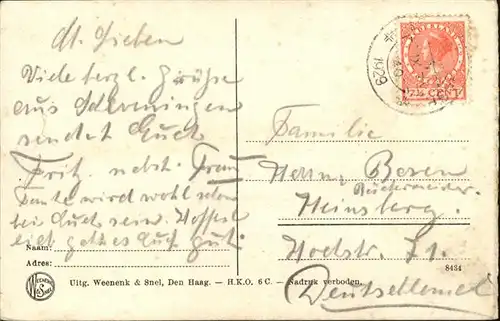 M. Lieben
Viele herzl. Grüße
aus Scheveningen
sendet Euch
Fritz nebst Frau
Tante wird wohl schon
bei Euch sein. Hoffentl.
geht es Euch gut.
Naam:
Adres:
WEENENK
& SNEL
Uitg. Weenenk & Snel, Den Haag. — H.K.O. 6 C. — Nadruk verboden.
1929
NEDERLAND
7½ CENT
Familie
Herrn Besen
Heinsberg.
Hochstr. 71.
8434
Deutschland